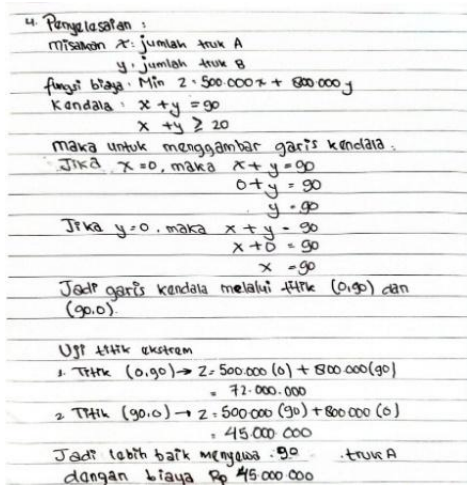 4. Penyelesaian :
misalkan x : jumlah truk A
y : jumlah truk B
fungsi biaya : Min z = 500.000x + 800.000y
Kendala : x + y = 90
x + y ≥ 20
maka untuk menggambar garis kendala :
Jika x = 0, maka x + y = 90
0 + y = 90
y = 90
Jika y = 0, maka x + y = 90
x + 0 = 90
x = 90
Jadi garis kendala melalui titik (0,90) dan
(90,0).
Uji titik ekstrem
1. Titik (0,90) → z = 500.000 (0) + 800.000 (90)
= 72.000.000
2. Titik (90,0) → z = 500.000 (90) + 800.000 (0)
= 45.000.000
Jadi lebih baik menyewa 90 truk A
dengan biaya Rp 45.000.000